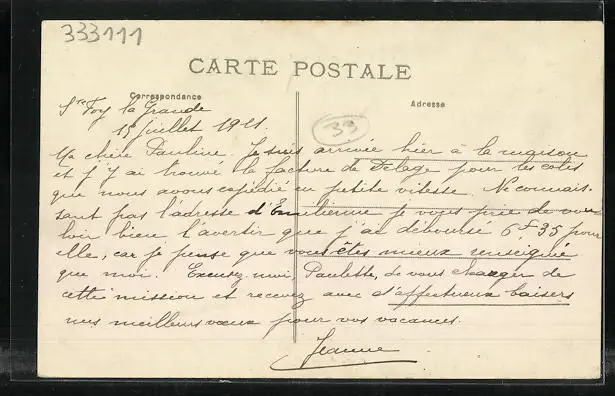 333111
CARTE POSTALE
Correspondance
Adresse
Ste Foy la Grande
33
15 juillet 1921.
Ma chère Pauline. Je suis arrivée hier à la maison
et j'y ai trouvé la facture de Delage pour les colis
que nous avons expédié en petite vitesse. Ne connais-
sant pas l'adresse d'Emilienne je vous prie de vou-
loir bien l'avertir que j'ai déboursé 6f35 pour
elle, car je pense que vous êtes mieux renseignée
que moi. Excusez-moi, Paulette, de vous charger de
cette mission et recevez avec d'affectueux baisers
mes meilleurs vœux pour vos vacances.
Jeanne